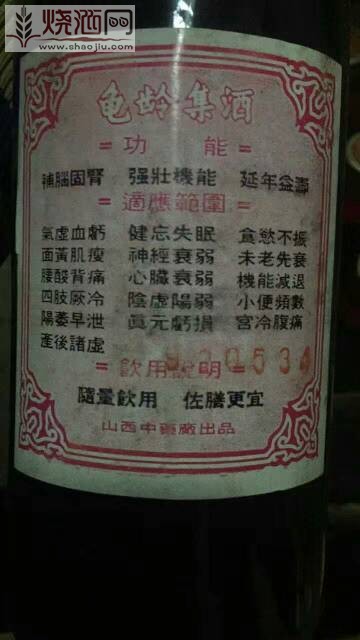 烧酒网
www.shaojiu.com
龟龄集酒
=功 能=
補腦固腎 强壯機能 延年益壽
=適應範圍=
氣虛血虧 健忘失眠 食慾不振
面黃肌瘦 神經衰弱 未老先衰
腰酸背痛 心臟衰弱 機能減退
四肢厥冷 陰虛陽弱 小便頻數
陽萎早泄 眞元虧損 宮冷腹痛
產後諸虛
920534
=飲用說明=
隨量飲用 佐膳更宜
山西中藥廠出品